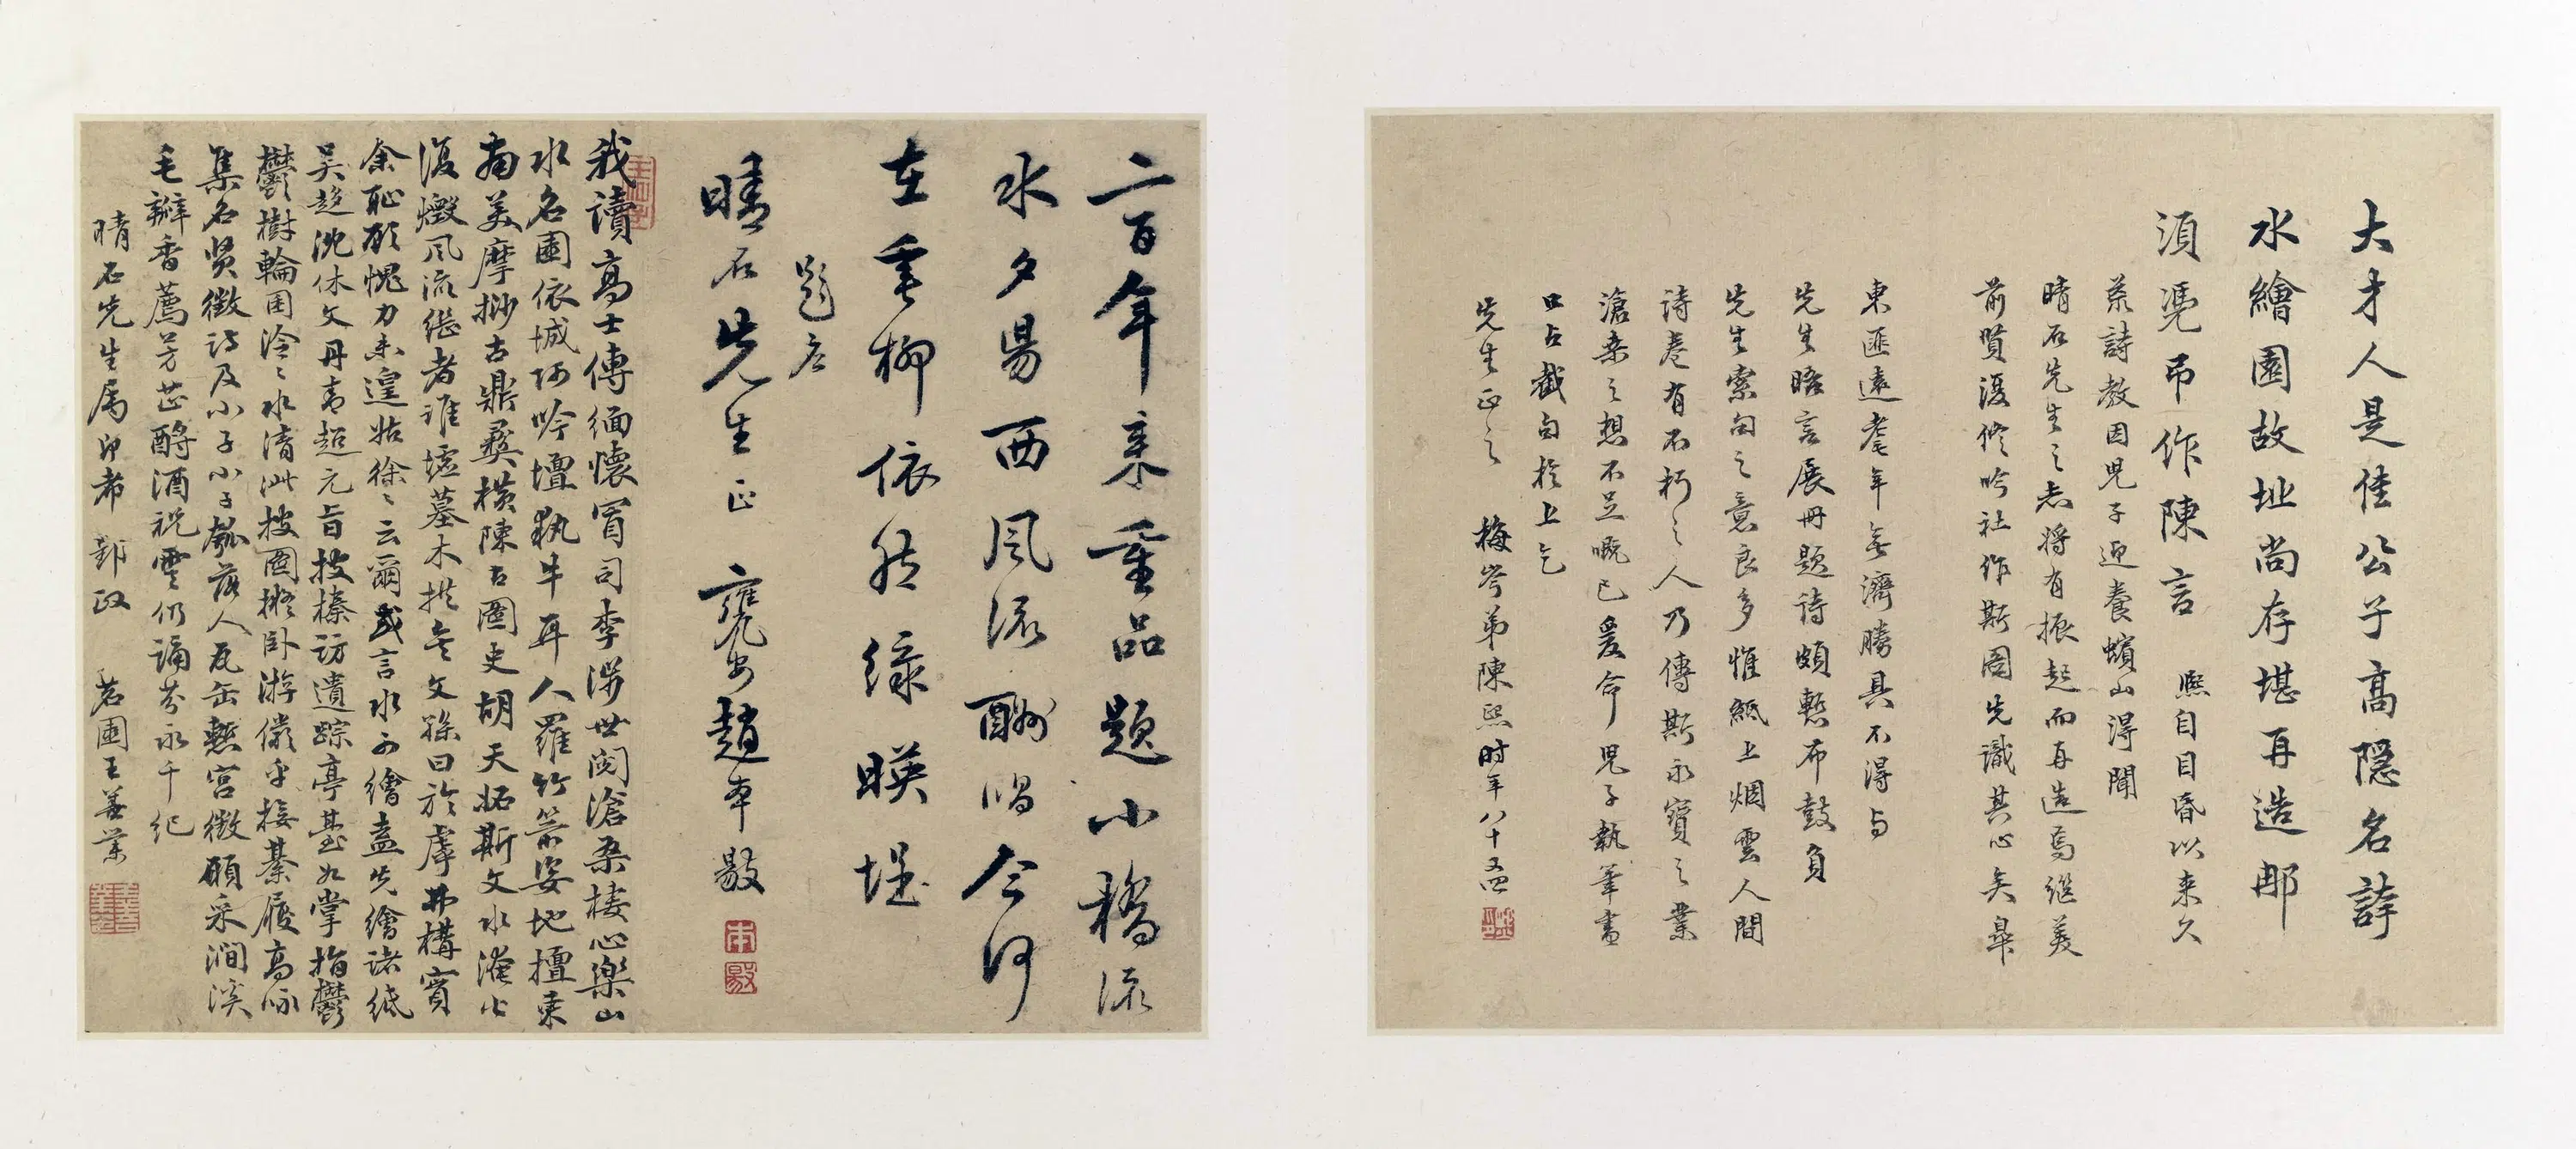 大才人是佳公子高隱名誇
水繪園故址尚存堪再造那
須憑弔作陳言
熙自目昏以来久
荒詩教因児子迎養蠙山得聞
晴石先生之志将有振起而再造焉繼美
前賢復修吟社作斯圖先識其心矣皋
東匪遠耄年無濟勝具不得与
先生晤言展冊題詩頗慙布鼓負
先生索句之意良多惟紙上烟雲人間
詩卷有不朽之人乃傳斯永寶之業
滄桑之想不足嘅已爰命児子執筆書
口占截句於上乞
先生正之 梅岑弟陳熙时年八十
二百年来重品題小橋流
水夕陽西風流酬唱今何
在垂柳依然綠暎堤
題应
晴石先生正 甕安趙本敭
本敭
我讀高士傳緬懷冒司李澇世閲滄桑棲心樂山
水名園依城阿吟壇執牛耳人羅竹箭姿地擅東
南美摩挱古鼎彝横陳古圖史胡天妬斯文水淹火
復燬風流繼者誰墟墓木拱矣文孫曰於虖弗構實
余恥願愧力未遑姑徐徐云爾或言水可繪盍先繪諸紙
吴趂沈休文丹青超元旨披榛訪遺踪亭臺如掌指鬱
鬱樹輪囷泠泠水清泚披圖擬卧游儼乎接綦履高咏
集名賢徵詩及小子小子瓠落人瓦缶慙宫徵願采澗溪
毛瓣香薦芳芷酹酒祝雲仍誦芬永千紀
晴石先生属即希 郢政 茗圃王善業